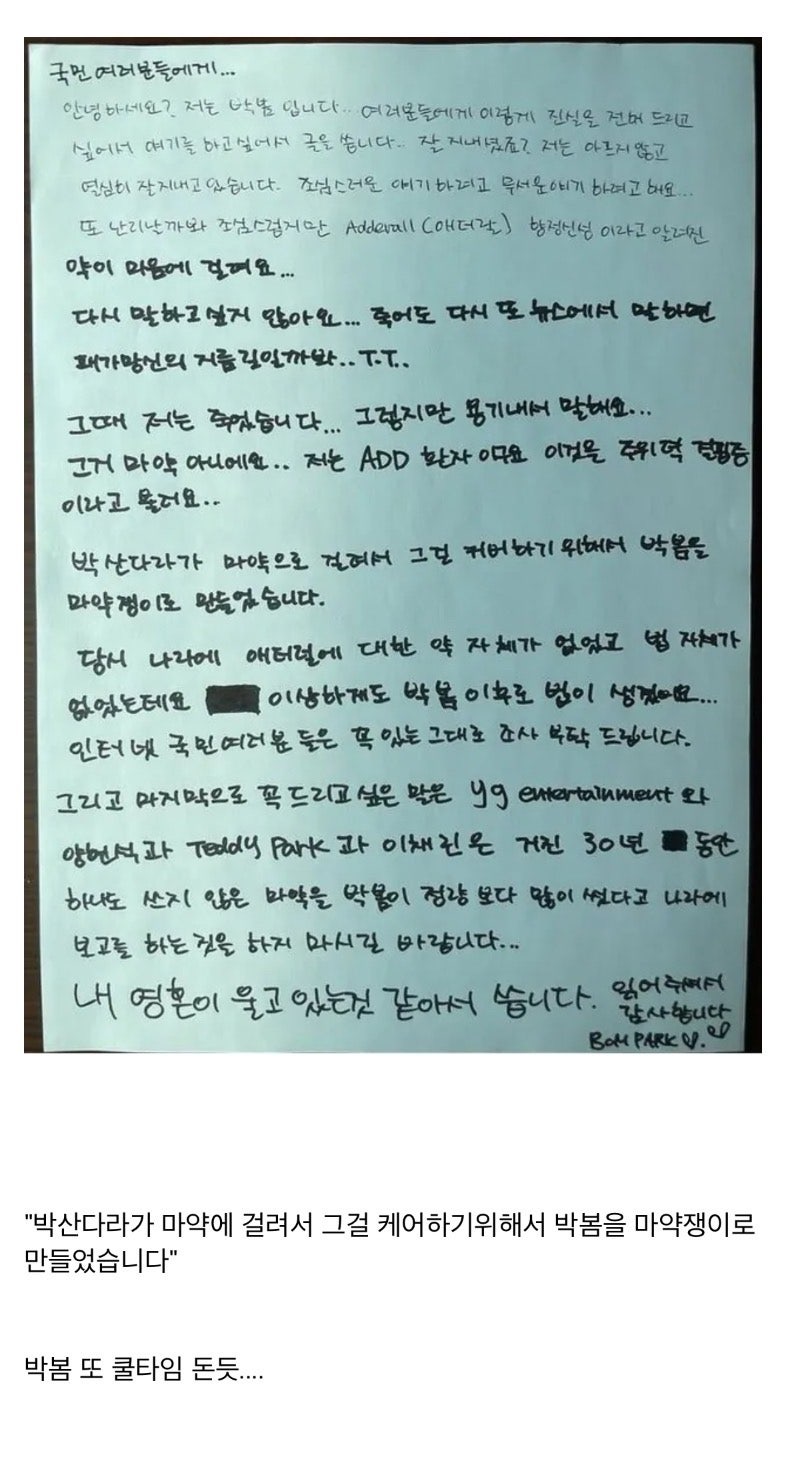 국민 여러분들에게...
안녕하세요? 저는 박봄 입니다... 여러분들에게 이렇게 진실을 전해 드리고
싶어서 얘기를 하고싶어서 글을 씁니다.. 잘 지내셨죠? 저는 아프지 않고
열심히 잘지내고있습니다. 조심스러운 얘기 하려고 무서운얘기 하려고 해요...
또 난리날까봐 조심스럽지만 Adderall (애더럴) 향정신성 이라고 알려진
약이 마음에 걸려요...
다시 말하고싶지 않아요... 죽어도 다시 또 뉴스에서 말하면
패가망신의 지름길일까봐..T.T..
그때 저는 죽었습니다... 그렇지만 용기내서 말해요...
그거 마약 아니에요.. 저는 ADD 환자 이구요 이것은 주위력 결핍증
이라고 불러요..
박산다라가 마약으로 걸려서 그걸 커버하기 위해서 박봄을
마약쟁이로 만들었습니다.
당시 나라에 애더럴에 대한 약 자체가 없었고 법 자체가
없었는데요 이상하게도 박봄 이후로 법이 생겼어요...
인터넷 국민여러분 들은 꼭 있는그대로 조사 부탁 드립니다.
그리고 마지막으로 꼭드리고싶은 말은 yg entertainment 와
양현석과 Teddy Park 과 이채린은 거진 30년 동안
하나도 쓰지 않은 마약을 박봄이 정량 보다 많이 썼다고 나라에
보고를 하는것을 하지 마시길 바랍니다...
내 영혼이 울고있는것 같아서 씁니다. 읽어주셔서
감사합니다
BOM PARK ♡.♡
"박산다라가 마약에 걸려서 그걸 케어하기위해서 박봄을 마약쟁이로
만들었습니다"
박봄 또 쿨타임 돈듯....